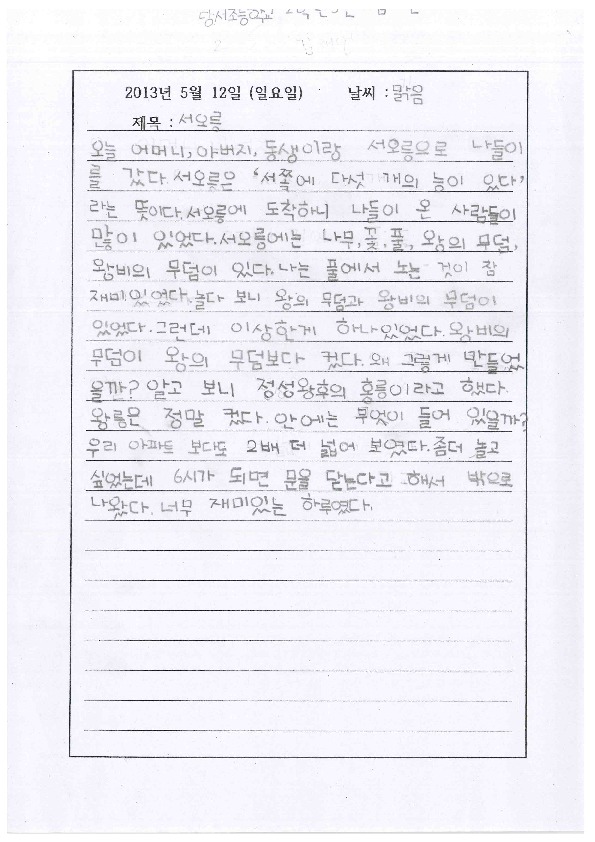 2013년 5월 12일 (일요일) 날씨 : 맑음
제목 : 서오릉
오늘 어머니, 아버지, 동생이랑 서오릉으로 나들이
를 갔다. 서오릉은 '서쪽에 다섯 개의 능이 있다'
라는 뜻이다. 서오릉에 도착하니 나들이 온 사람들이
많이 있었다. 서오릉에는 나무, 꽃, 풀, 왕의 무덤,
왕비의 무덤이 있다. 나는 풀에서 노는 것이 참
재미있었다. 놀다 보니 왕의 무덤과 왕비의 무덤이
있었다. 그런데 이상한게 하나있었다. 왕비의
무덤이 왕의 무덤보다 컸다. 왜 그렇게 만들었
을까? 알고 보니 정성왕후의 홍릉이라고 했다.
왕릉은 정말 컸다. 안에는 무엇이 들어 있을까?
우리 아파트 보다도 2배 더 넓어 보였다. 좀더 놀고
싶었는데 6시가 되면 문을 닫는다고 해서 밖으로
나왔다. 너무 재미있는 하루였다.